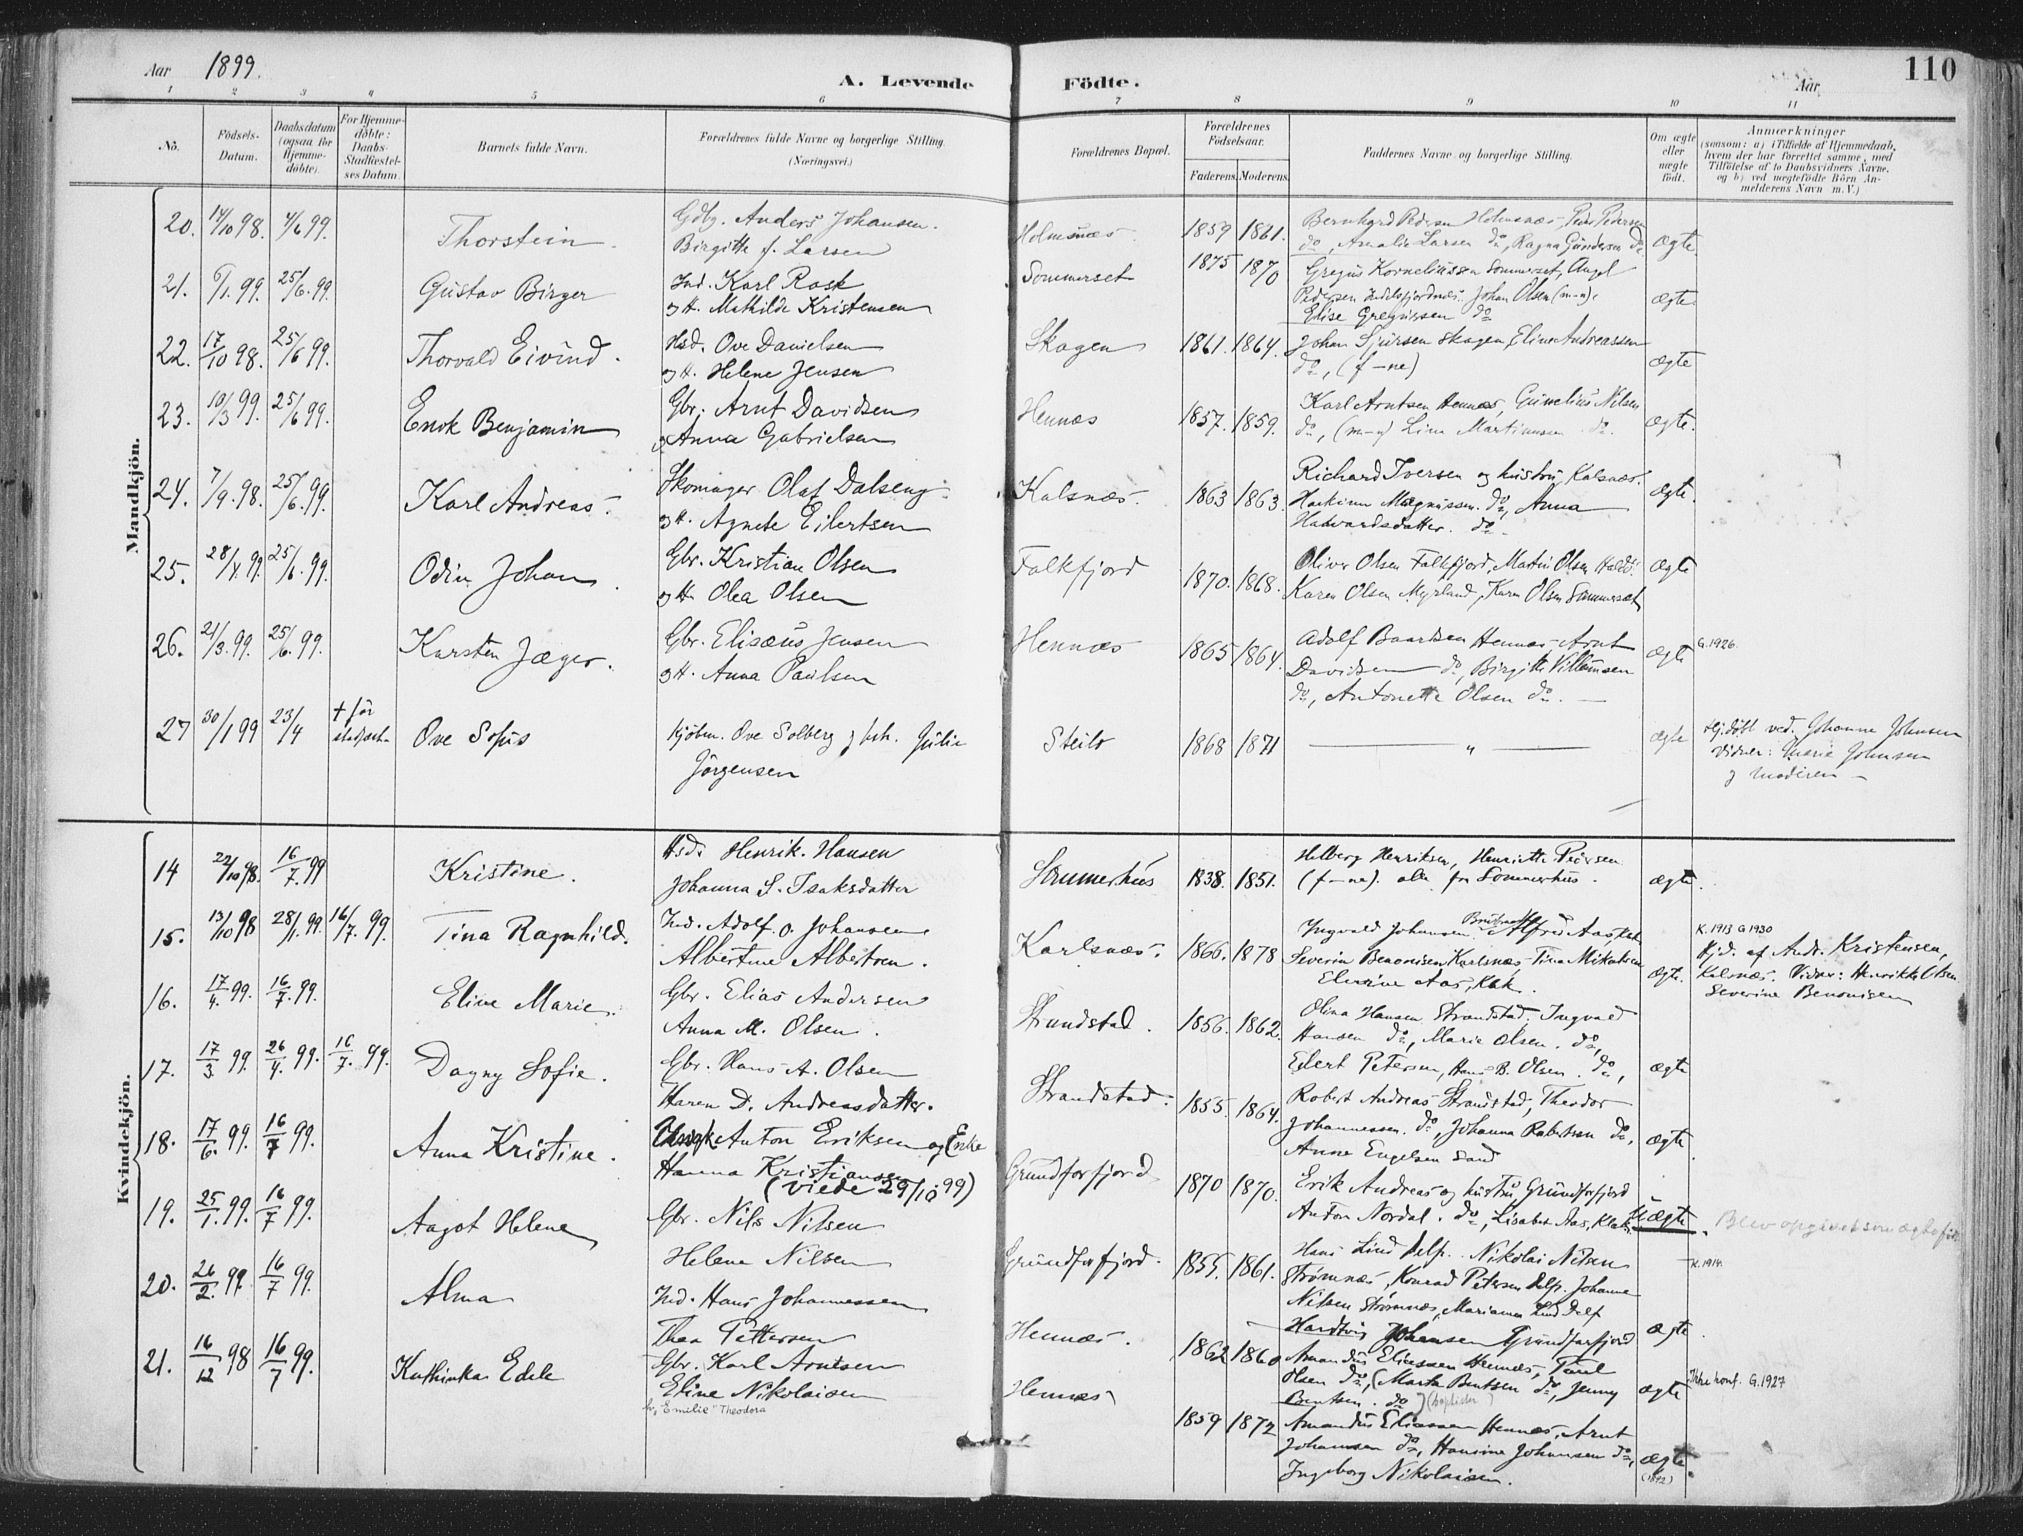 Aar 1899.
A. Levende Födte.
Aar
110
1 2 3 4 5 6 7 8 9 10 11
No.
Födsels-Datum.
Daabsdatum (ogsaa for Hjemme-döbte).
For Hjemme-döbte: Daabs-Stadfæstel-ses Datum.
Barnets fulde Navn.
Forældrenes fulde Navne og borgerlige Stilling (Næringsvei.)
Forældrenes Bopæl.
Forældrenes Födselsaar.
Faderens. Moderens.
Faddernes Navne og borgerlige Stilling.
Om ægte eller uægte födt.
Anmærkninger
(saasom: a) i Tilfælde af Hjemmedaab, hvem der har forrettet samme, med Tilföielse af to Daabsvidners Navne, og b) ved uægtefödte Börn An-melderens Navn m. V.)
Mandkjön.
20. 14/10 98. 4/6 99. Thorstein. Gdbg. Anders Johansen. Holmesnæs 1859 1861. Bernhard Pedersen Holmesnæs, Peder Pedersen
Birgitte f. Larsen do, Amalie Larsen do, Ragna Gundersen do ægte
21. 6/1. 99. 25/6. 99. Gustav Birger Ind. Karl Rask Sommerset 1875 1870 Gregus Korneliussen Sommerset, Angel
og H. Mathilde Kristensen Pedersen Johan Olsen (m-n), ægte
Elise Gregussen do
22. 17/10 98. 25/6 99. Thorvald Eivind. Hsd. Ove Danielsen Skogen 1861. 1864. Johan Sjursen Skogen, Eline Andreassen
og H. Helene Jensen do, (f-ne) ægte
23. 10/3 99. 25/6 99. Enok Benjamin Gbr. Arnt Davidsen Hennæs 1857. 1859. Karl Arntsen Hennæs, Gunelius Nilsen
og Anna Gabrielsen do, (m-n) Lina Martinussen do. ægte.
24. 7/9. 98. 25/6. 99. Karl Andreas. Skomager Olaf Dalseng Kalsnæs. 1863 1863. Richard Iversen og hustru Kalsnæs.
og H. Agnete Eilertsen Magnussen. do, Anna ægte.
Halvardsdatter. do.
25. 28/4. 99. 25/6. 99. Odin Johan. Gbr. Kristian Olsen Falkfjord 1870. 1868. Oliver Olsen Falkfjord, Martin Olsen
og H. Olea Olsen Karen Olsen Myrland, Karen Olsen Sommerset ægte
26. 21/3. 99. 25/6. 99. Karsten Jæger. Gbr. Elisæus Jensen Hennæs 1865 1864. Adolf Baartsen Hennæs, Arnt ægte G. 1926.
og H. Anna Paulsen Davidsen do, Birgitte Villumsen
do, Antonette Olsen do. —
27 30/1 99 23/4 + før stadfæst. Ove Sofus Kjøbm. Ove Solberg og h. Julie Jörgensen Steilo 1868 1871 — " — ægte Hj.døbt ved. Johanne Johnsen
Vidner: Marie Johnsen
og Moderen —
Kvindekjön.
14 22/10 98. 16/7. 99 Kristine. Hsd. Henrik. Hansen Sommerhus 1838. 1851. Helberg Henriksen, Henriette Pedersen
Johanna S. Isaksdatter (f-ne). alle fra Sommerhus. ægte.
15. 13/10 98 28/1. 99. 16/7. 99. Tina Ragnhild. Ind. Adolf. O. Johansen Karlsnæs. 1866. 1878 Ingvald Johansen Alfred Aas, Klak K. 1913 G 1930
Albertine Albertsen. Severin Benonisen Karlsnæs, Tina Mikalsen ægte. Hjd. af Andr. Kristensen,
Elverine Aas, Klak. Kalsnæs. Vidner: Henrikke Olsen
Severine Benonisen
16. 17/4. 99. 16/7. 99. Eline Marie. Gbr. Elias Andersen Strandstad. 1856. 1862. Olina Hansen Strandstad, Ingvald
Anna M. Olsen. Hansen do, Marie Olsen. do,
Edert Petersen, Hans B. Olsen. do, ægte
17. 17/3. 99. 26/4. 99. 16/7. 99. Dagny Sofie. Gbr. Hans A. Olsen Strandstad. 1855. 1864. Robert Andreas Strandstad, Theodor
Karen D. Andreasdatter. Johannessen. do, Johanna Robertsen do, ægte
Anne Engelsen Sand
18. 17/6. 99. 16/7 99. Anna Kristine. Ungk. Anton Eriksen og (Enke Grundforfjord 1870 1870. Erik Andreas og hustru, Grundforfjord
Hanna Kristiansen (viede 29/10. 99) Anton Nordal. do, Lisabet Aas, Klak. Uægte. Blev opgivet som ægtefödt
19. 25/1. 99. 16/7 99. Aagot Helene Gbr. Nils Nilsen Grundforfjord. 1855. 1861. Hans Lind Delp. Nikolai Nilsen K. 1914.
Helene Nilsen Strømnæs, Konrad Petersen Delp. Johanne
Nilsen Strømnæs, Marianna Lind Delp
20. 26/2. 99. 16/7 99. Alma Ind. Hans Johannessen Hennæs. Hardtvig Johansen Grundforfjord ægte.
Thea Pettersen 1862 1860 Amandus Eliassen Hennæs, Parel
Olsen do, (Marta Bentsen do, Jenny ægte Ikke konf. G. 1927
Bentsen. do) (baptister)
21. 16/12 98 16/7 99. Kathinka Edele Gbr. Karl Arntsen Hennæs 1859 1872 Amandus Eliassen Hennæs, Arnt
Eline Nikolaisen Johansen do, Hansine Johansen do, ægte.
"Emilie" Theodora Ingeborg Nikolaisen. (1892)